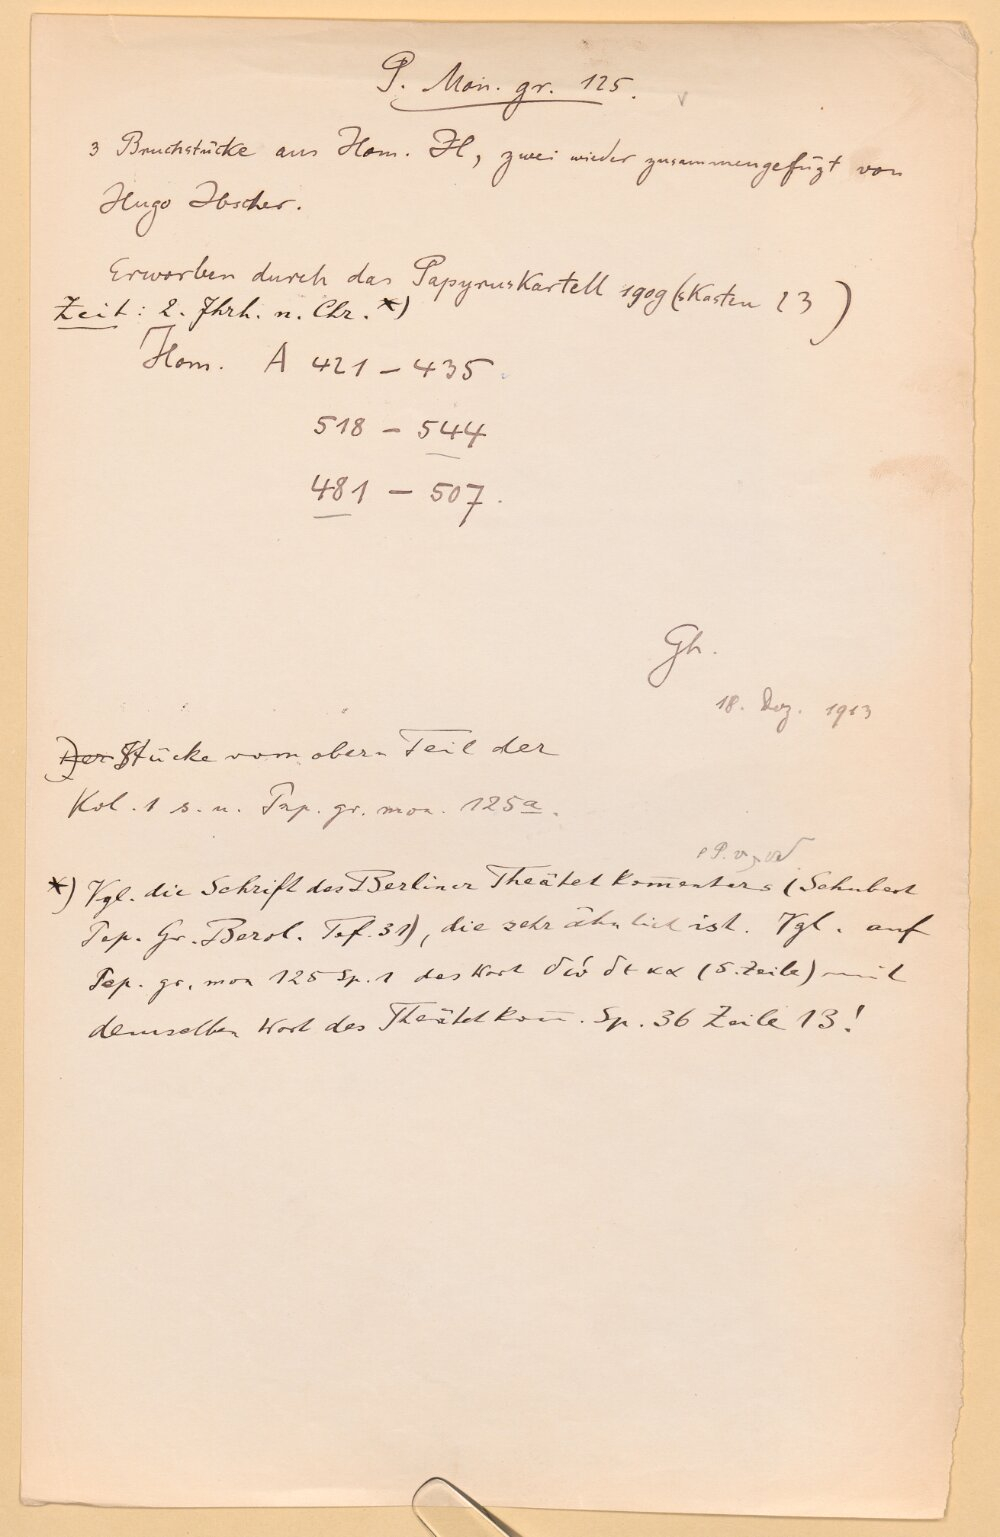 P. Mon. gr. 125.
3 Bruchstücke aus Hom. Il, zwei wieder zusammengefügt von
Hugo Ibscher.
Erworben durch das Papyruskartell 1909 (Kasten 23)
Zeit: 2. Jhrh. n. Chr. *)
Hom. A 421 – 435
518 – 544
481 – 507.
Gh.
18. Dez. 1913
Stücke vom obern Teil der
Kol. 1 s. u. Pap. gr. mon. 125a.
*) Vgl. die Schrift des Berliner Theätetkom̅entars (Schubart
Pap. Gr. Berol. Taf. 31), die sehr ähnlich ist. Vgl. auf
Pap. gr. mon 125 Sp. 1 das Wort δώδεκα (5. Zeile) mit
demselben Wort des Theätetkom̅. Sp. 36 Zeile 13!